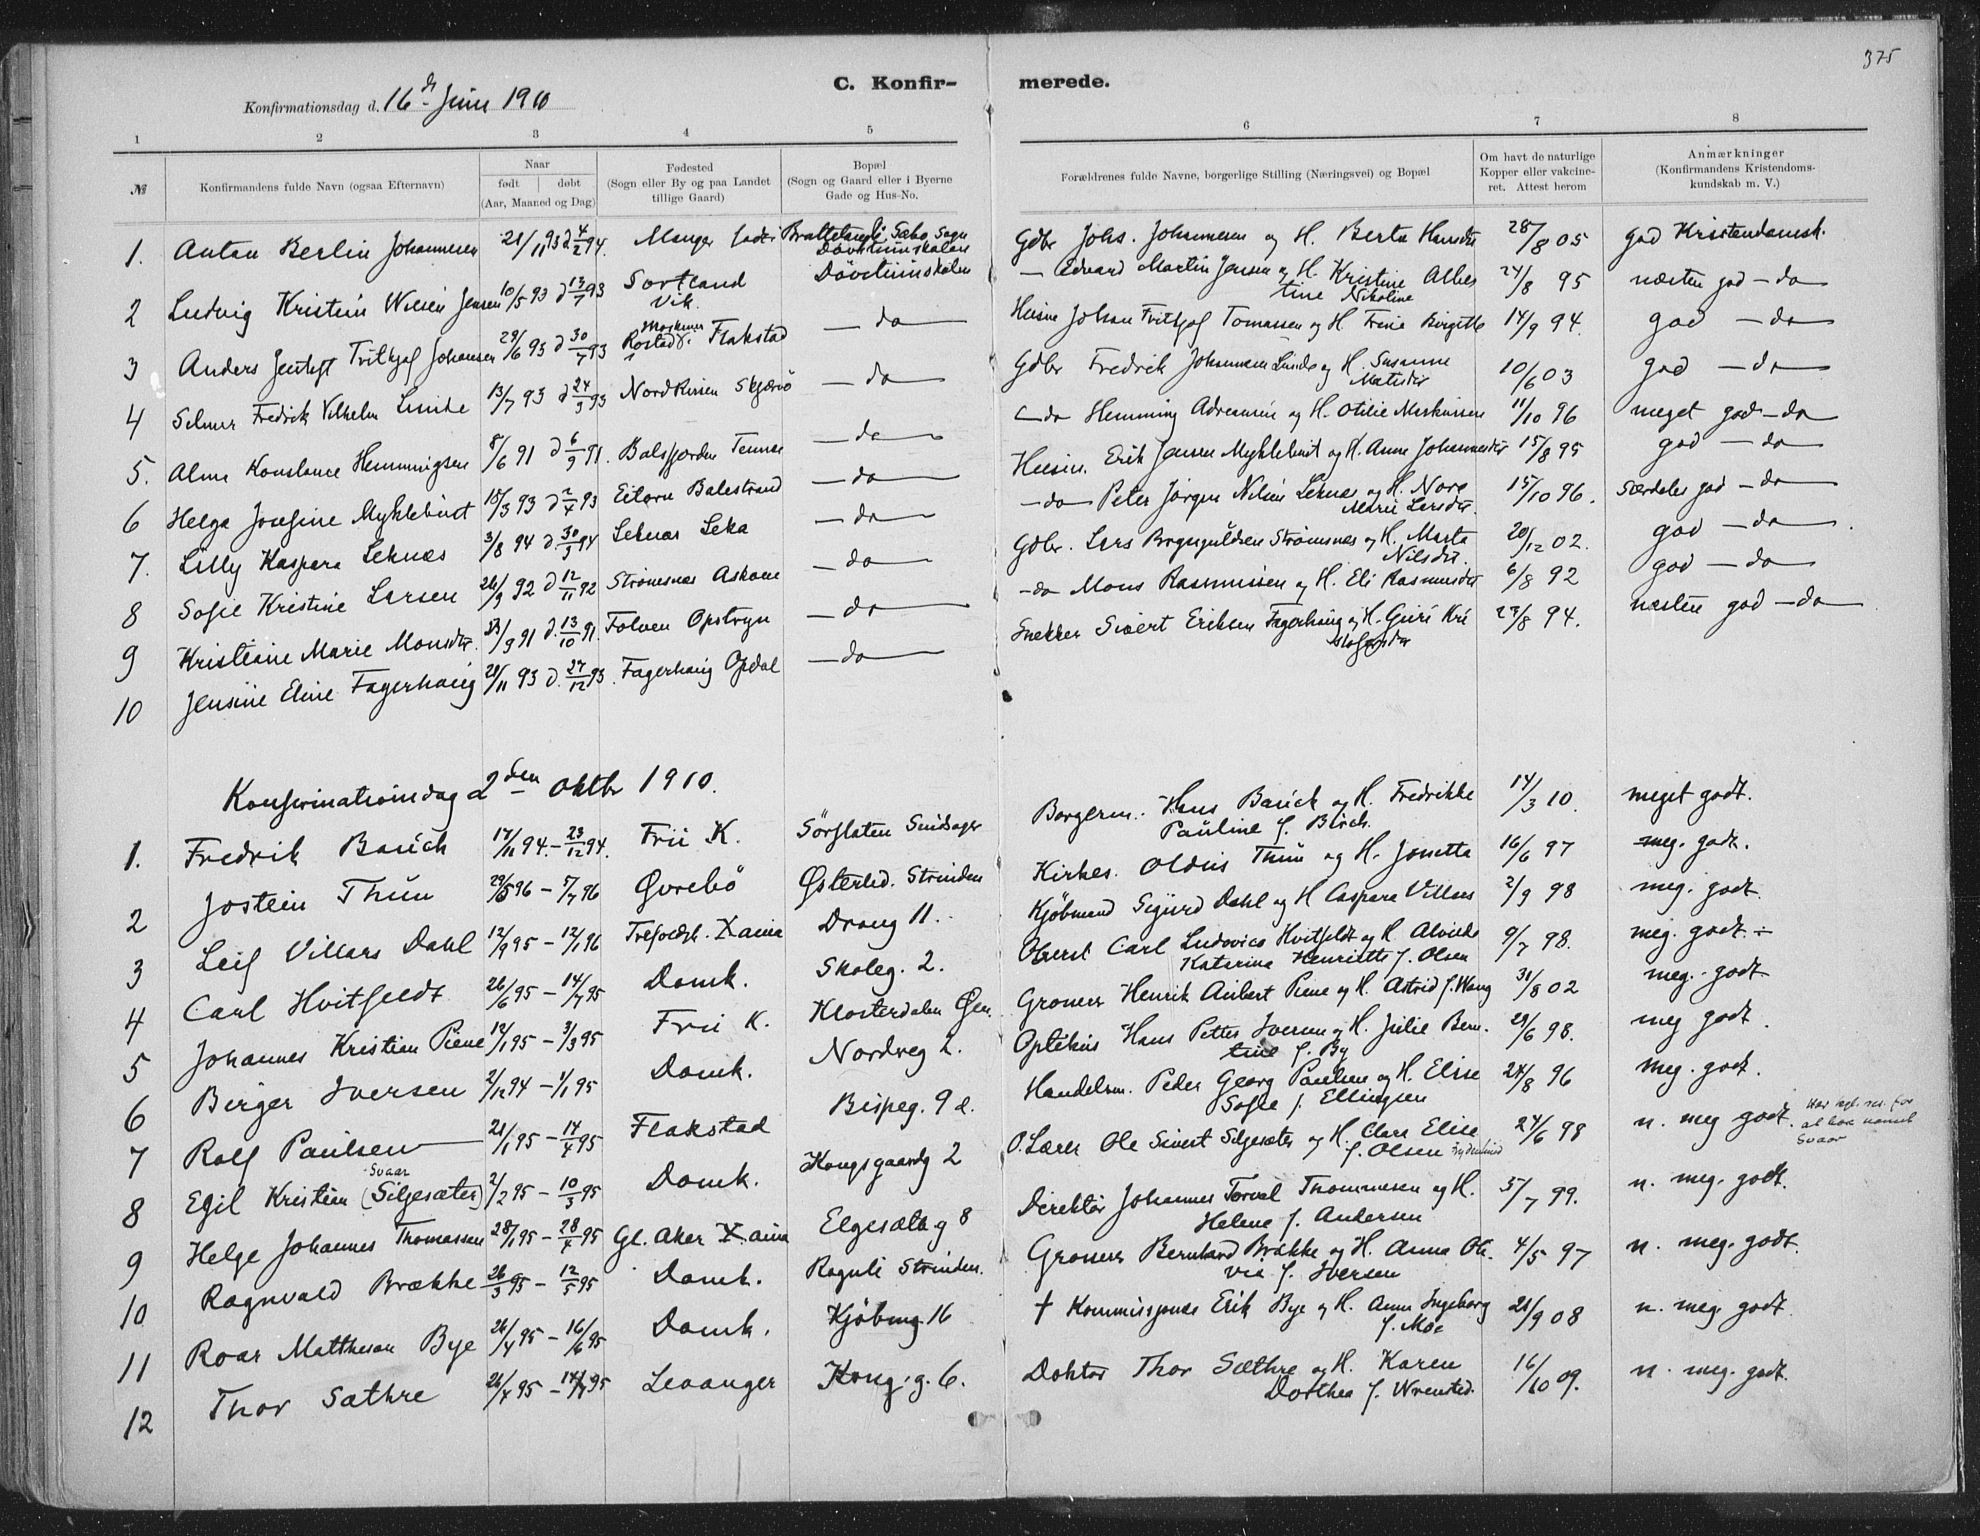 375
C. Konfir- merede.
Konfirmationsdag d. 16de Juni 1910
1 2 3 4 5 6 7 8
№ Konfirmandens fulde Navn (ogsaa Efternavn)
Naar født | døbt (Aar, Maaned og Dag)
Fødested (Sogn eller By og paa Landet tillige Gaard)
Bopæl (Sogn og Gaard eller i Byerne Gade og Hus-No.
Forældrenes fulde Navne, borgerlige Stilling (Næringsvei) og Bopæl
Om havt de naturlige Kopper eller vakcineret. Attest herom
Anmærkninger (Konfirmandens Kristendomskundskab m. V.)
1. Anton Berlin Johannesen 21/11 93 d 4/2 94. Manger Døvstumskolen Gdbr Johs. Johannesen og H. Berta Hansdtr 28/8 05 god Kristendomsk.
2 Ludvig Kristian Jensen 10/5 93 d 13/7 93 Sortland Vik Døvstumskolen — Edvard Martin Jensen og H. Kristine Albertine Nikoline 24/8 95 næsten god — do
3 Anders Frithjof Johansen 29/6 93 d 30/7 93 Flakstad — do — Husm Johan Fritjof Tomassen og H Trine Birgitte 14/9 94. god — do
4 Selmer Fredrik Vilhelm Lunde 13/7 93 d 24/9 93 Skjervö — do — Gdbr Fredrik Johannesen Lunde og H. Susanne 10/6 03 god — do
5. Alma Konstance Hemmingsen 8/6 91 d 6/9 91. Balsfjorden — do — — do Hemming Adreassen og H. Otilie Markussen 11/10 96 meget god — do
6 Helga Josefine Myklebust 15/3 93 d 2/4 93 Balestrand — do — Husm. Erik Jensen Myklebust og H. Anne Johannesdtr 15/8 95 god — do
7. Lilly Kaspara Leknæs 3/8 94 d. 30/9 94 Leknæs Leka — do — — do Peter Jørgen Leknæs og H. Marie Larsdtr. 15/10 96. særdeles god — do
8 Sofie Kristine Larsen 26/9 92 d 12/11 92 Strømsnæs Askøen — do — Gdbr. Lars Strømsnæs og H. Marta Nilsdtr. 20/12 02. god — do
9 Kristiane Marie Monsdtr. 23/9 91 d. 13/10 91. Folven Opstryn — do — — do Mons Rasmussen og H. Eli Rasmusdtr 6/8 92 god — do
10 Jensine Eline Fagerhaug 20/11 93 d. 27/12 93. Fagerhaug Opdal — do — Snekker Sivert Eriksen Fagerhaug og H. Guri Kristofersdtr 23/8 94. næsten god — do
Konfirmationsdag 2den Oktbr 1910.
1. Fredrik Bauck 17/11 94. — 23/12 94. Frue K. Borgerm. Hans Bauck og H. Fredrikke Pauline f. Birch. 14/3 10. meget godt.
2 Jostein Thun 29/5 96 — 5/7 96 Øvrebö Østerlid. Strinden Kirkes. Oldus Thun og H. Jonetta 16/6 97 meg. godt.
3 Leif Villars Dahl 12/9 95 — 12/1 96 Trefoldgh. Xania Drong 11. Kjöbmand Sigurd Dahl og H Caspara Villars 2/9 98 meg. godt.
4 Carl Hvitfeldt 26/6 95 — 14/7 95 Domk. Skoleg. 2. Oberst Carl Ludovico Hvitfeldt og H Alvilde Katarina Henriette f. Olsen 9/7 98. meg. godt.
5 Johannes Kristian Piene 12/1 95 — 3/3 95 Frue K. Klosterdalen Grosserer Henrik Aubert Piene og H. Astrid f. Wang 31/8 02 meg. godt
6 Birger Iversen 2/12 94 — 1/1 95 Domk. Nordreg 2. Optikus Hans Petter Iversen og H. Julie Berntine f. By 29/6 98. meg godt.
7 Rolf Paulsen 21/1 95 — 14/4 95 Flakstad Bispeg. 9 d. Handelsm. Peder Georg Paulsen og H. Elise Sofie f. Ellingsen 24/8 96 meg. godt.
8 Egil Kristian (Silgesæter) Svaar 2/2 95 — 10/3 95 Domk. Kongsgaardg 2 O. Lærer Ole Sivert Silgesæter og H. Clara Elise f. Olsen 24/6 98 n. meg godt.
9 Helge Johannes Thomassen 28/1 95 — 28/4 95 Gl. Aker Xania Elgesæterg 8 Direktør Johannes Torval Thommesen og H. Helene f. Andersen 5/7 99. n. meg. godt.
10 Ragnvald Brække 26/3 95 — 12/5 95 Domk. Roguli Strinden. Grosserer Bernhard Brække og H. Anna Olivia f. Iversen 4/5 97 n. meg. godt.
11 Roar Matheson Bye 26/4 95 — 16/6 95 Domk. Kjöbmg. 16 † Kommissjonær Erik Bye og H. Anna Ingeborg f. Moe 21/9 08 n. meg. godt
12 Thor Sæthre 26/4 95 — 14/7 95 Levanger Kong. g. 6. Doktor Thor Sæthre og H. Karen Dorthea f. Wrensted. 16/10 09. n. meg. godt.